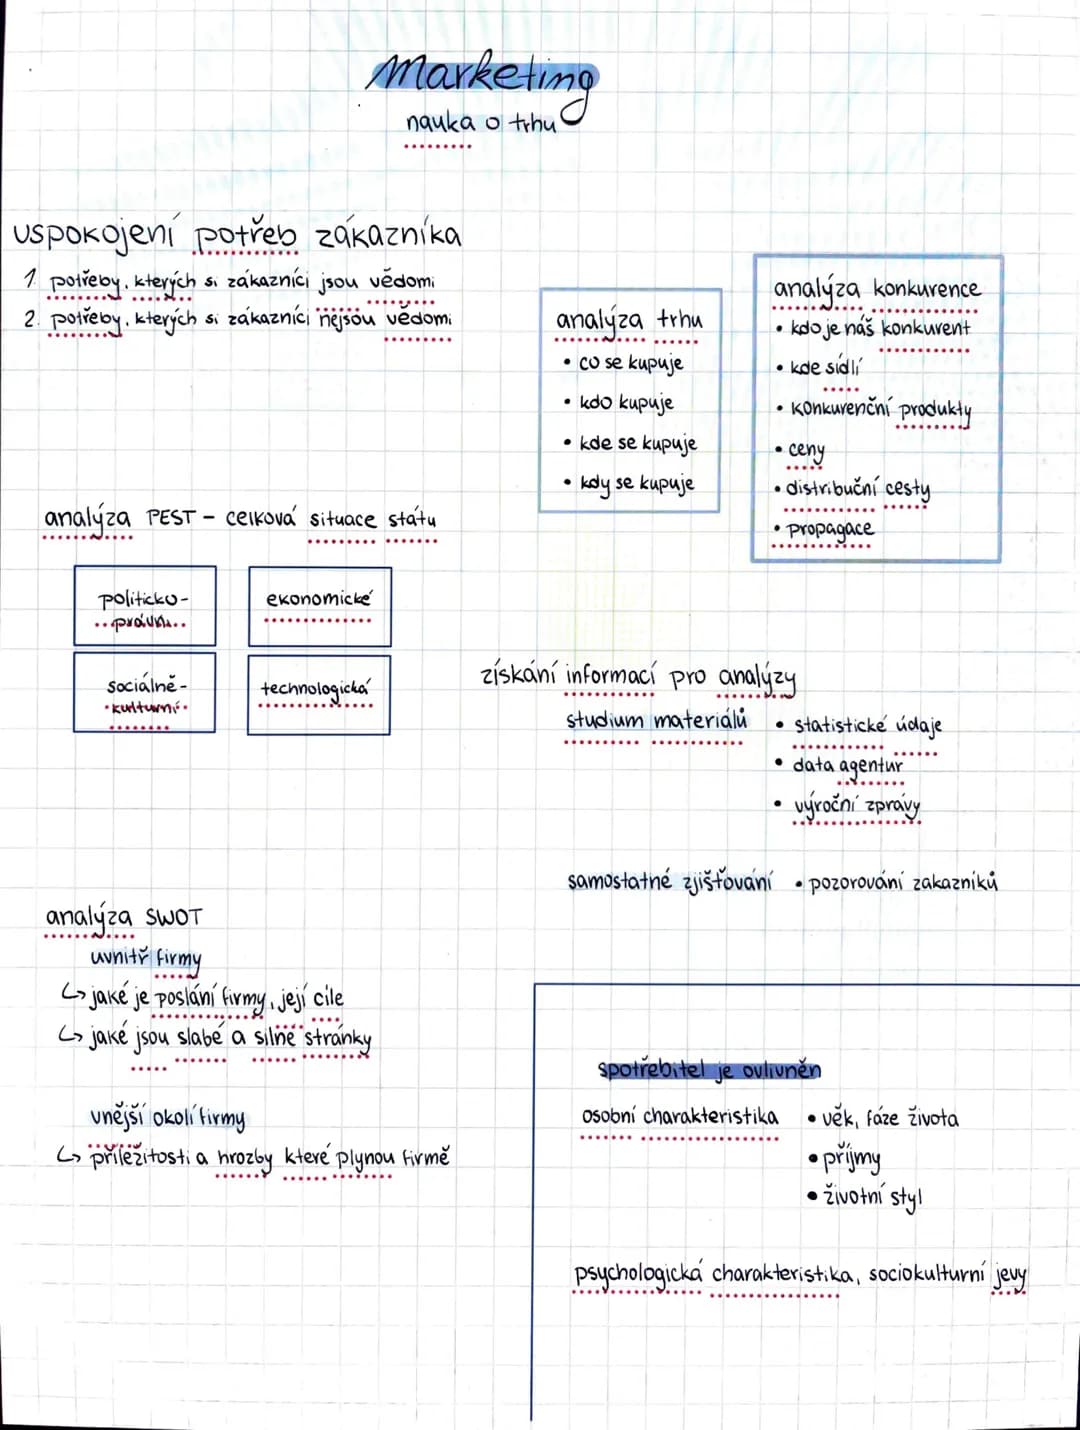 Marketing
nauka o trhu
uspokojení potřeb zákazníka
1. potřeby, kterých si zákazníci jsou vědomi
2. potřeby, kterých si zákazníci nejsou vědomi
analýza trhu
• co se kupuje
• kdo kupuje
• kde se kupuje
• kdy se kupuje
analýza konkurence
• kdo je náš konkurent
• kde sídlí
• konkurenční produkty
• ceny
• distribuční cesty
• propagace
analýza PEST - celková situace státu
politicko-
právní
ekonomické
sociálně-
kulturní
technologická
získání informací pro analýzy
studium materiálů • statistické údaje
• data agentur
• výroční zprávy
samostatné zjišťování • pozorování zakazníků
analýza SWOT
uvnitř firmy
↳ jaké je poslání firmy, její cíle
↳ jaké jsou slabé a silné stránky
vnější okolí firmy
↳ příležitosti a hrozby které plynou firmě
spotřebitel je ovlivněn
osobní charakteristika • věk, fáze života
• příjmy
• životní styl
psychologická charakteristika, sociokulturní jevy